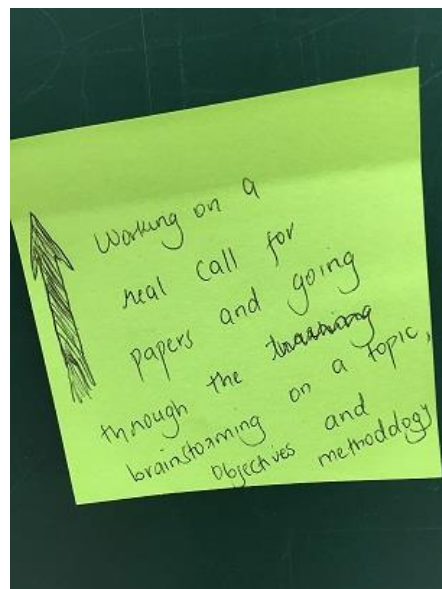 Working on a
real call for
papers and going
through the
brainstorming on a topic,
objectives and
methodology